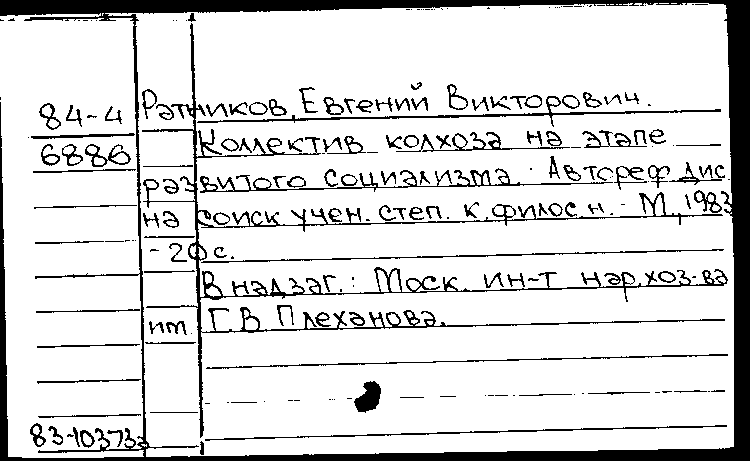 84-4 Ратников, Евгений Викторович.
6886 Коллектив колхоза на этапе
развитого социализма. Автореф дис
на соиск учен. степ. к. филос. н. - М., 1983
- 20 с.
В надзаг.: Моск. ин-т нар. хоз-ва
им. Г. В Плеханова.
83-10373а